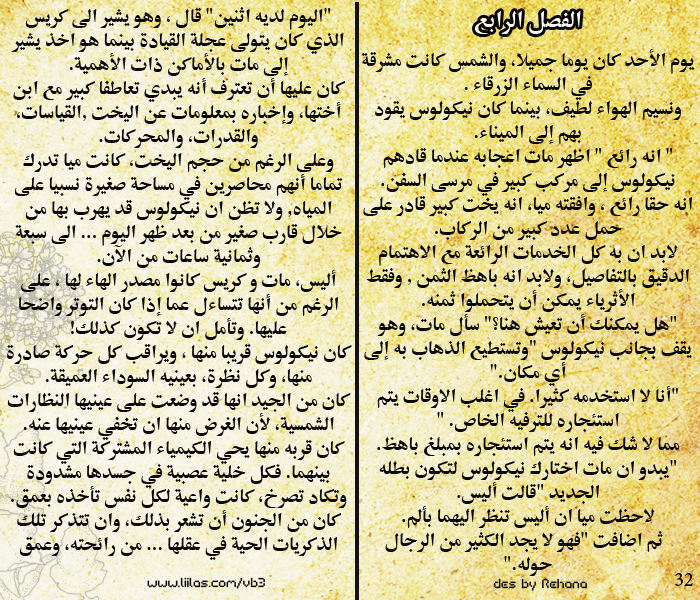 الفصل الرابع
يوم الأحد كان يوما جميلا، والشمس كانت مشرقة
في السماء الزرقاء .
ونسيم الهواء لطيف، بينما كان نيكولوس يقود
بهم إلى الميناء.
" انه رائع " اظهر مات اعجابه عندما قادهم
نيكولوس إلى مركب كبير في مرسى السفن.
انه حقا رائع ، وافقته ميا، انه يخت كبير قادر على
حمل عدد كبير من الركاب.
لابد ان به كل الخدمات الرائعة مع الاهتمام
الدقيق بالتفاصيل، ولابد انه باهظ الثمن , وفقط
الأثرياء يمكن أن يتحملوا ثمنه.
"هل يمكنك أن تعيش هنا؟" سأل مات، وهو
يقف بجانب نيكولوس "وتستطيع الذهاب به إلى
أي مكان."
"أنا لا استخدمه كثيرا. في اغلب الاوقات يتم
استئجاره للترفيه الخاص. "
مما لا شك فيه انه يتم استئجاره بمبلغ باهظ.
"يبدو ان مات اختارك نيكولوس لتكون بطله
الجديد "قالت أليس.
لاحظت ميا ان أليس تنظر اليهما بألم.
ثم اضافت "فهو لا يجد الكثير من الرجال
حوله."
des by Rehana
32
"اليوم لديه اثنين" قال ، وهو يشير الى كريس
الذي كان يتولى عجلة القيادة بينما هو اخذ يشير
إلى مات بالأماكن ذات الأهمية.
كان عليها أن تعترف أنه يبدي تعاطفا كبير مع ابن
أختها، وإخباره بمعلومات عن اليخت ,القياسات،
والقدرات، والمحركات.
وعلى الرغم من حجم اليخت، كانت ميا تدرك
تماما أنهم محاصرين في مساحة صغيرة نسبيا على
المياه, ولا تظن ان نيكولوس قد يهرب بها من
خلال قارب صغير من بعد ظهر اليوم ... الى سبعة
وثمانية ساعات من الآن.
أليس، مات و كريس كانوا مصدر الهاء لها ، على
الرغم من أنها تتساءل عما إذا كان التوتر واضحا
عليها. وتأمل ان لا تكون كذلك!
كان نيكولوس قريبا منها ، ويراقب كل حركة صادرة
منها، وكل نظرة، بعينيه السوداء العميقة.
كان من الجيد انها قد وضعت على عينيها النظارات
الشمسية، لأن الغرض منها ان تخفي عينيها عنه.
كان قربه منها يحي الكيمياء المشتركة التي كانت
بينهما. فكل خلية عصبية في جسدها مشدودة
وتكاد تصرخ، كانت واعية لكل نفس تأخذه بعمق.
كان من الجنون أن تشعر بذلك، وان تتذكر تلك
الذكريات الحية في عقلها ... من رائحته، وعمق
www.liilas.com/vb3